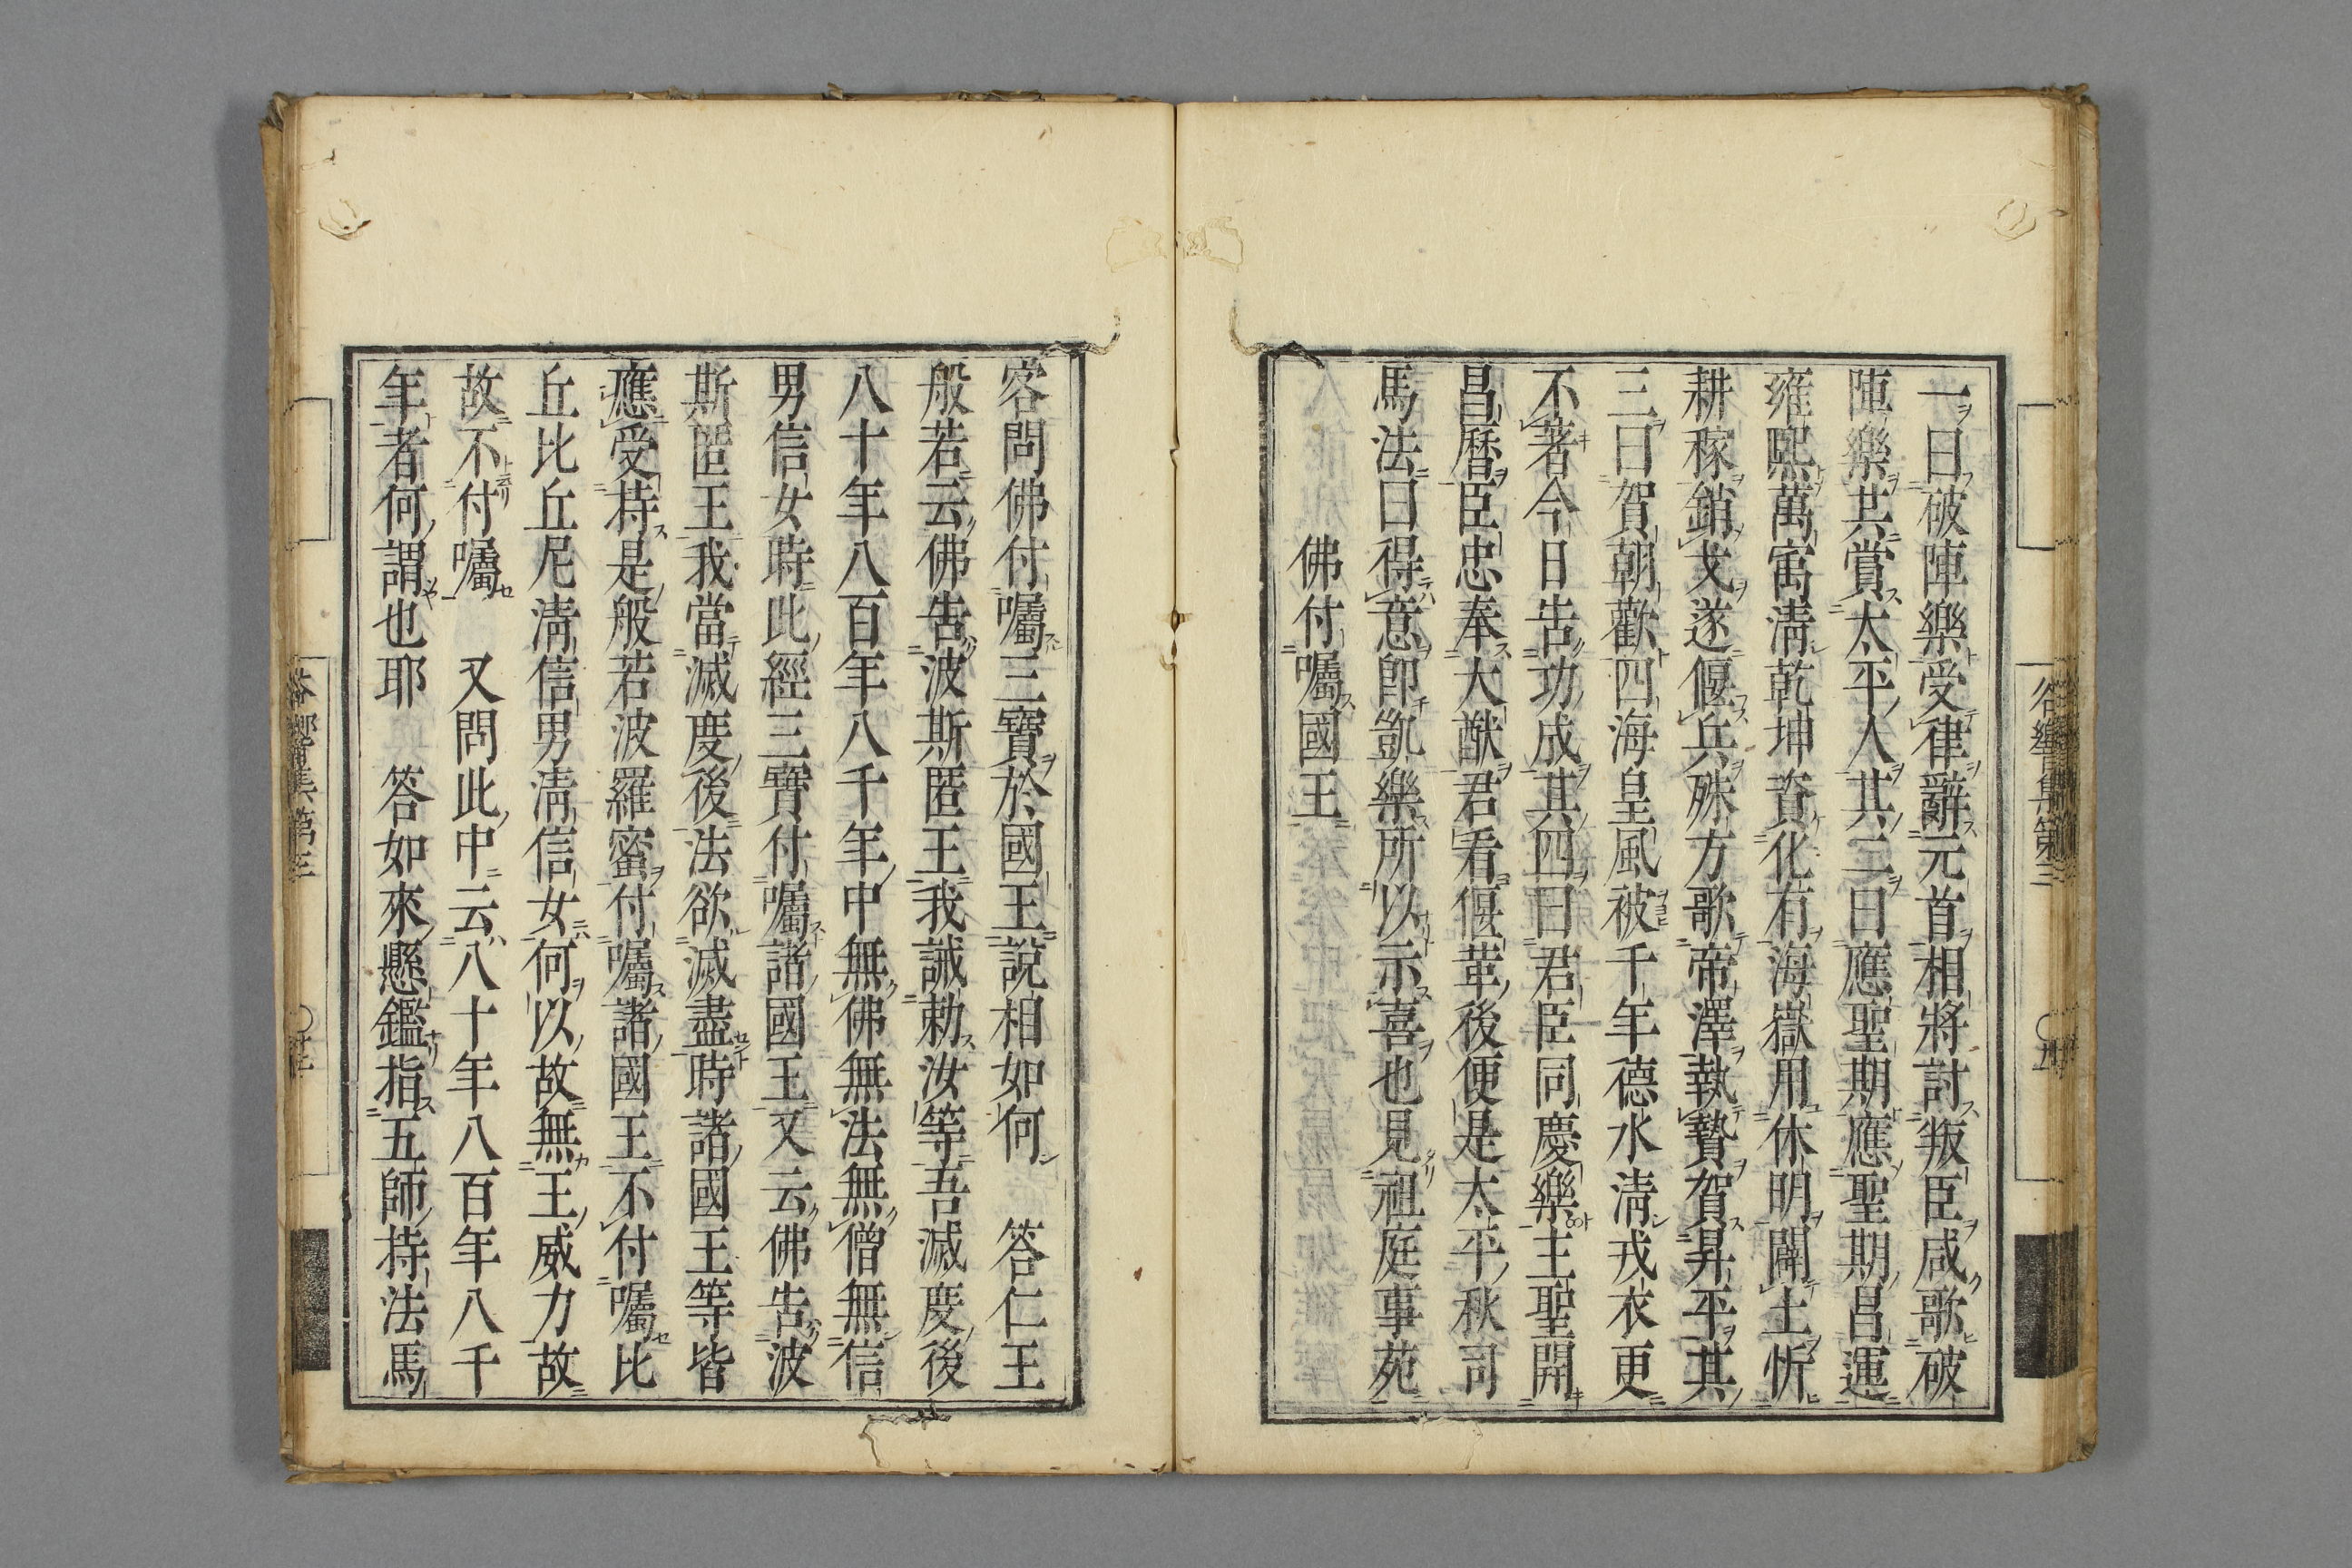 一曰破陣樂受律辭元首相將討叛臣咸歌破
陣樂共賞太平人其二曰應聖期應聖期昌運
雍熙萬㝢淸乾坤資化有海嶽用休明闢土忻
耕稼銷戈遂偃兵殊方歌帝澤執贄賀昇平其
三曰賀朝歡四海皇風被千年德水淸戎衣更
不著今日吿功成其四曰君臣同慶樂主聖開
昌曆臣忠奉大猷君看偃革後便是太平秋司
馬法曰得意卽凱樂所以示喜也見祖庭事苑
佛付囑國王
客問佛付囑三寶於國王說相如何 答仁王
般若云佛吿波斯匿王我誡勅汝等吾滅度後
八十年八百年八千年中無佛無法無僧無信
男信女時此經三寶付囑諸國王又云佛吿波
斯匿王我當滅度後法欲滅盡時諸國王等皆
應受持是般若波羅蜜付囑諸國王不付囑比
丘比丘尼淸信男淸信女何以故無王威力故
故不付囑 又問此中云八十年八百年八千
年者何謂也耶 答如來懸鑑指五師持法馬
谷響集第三